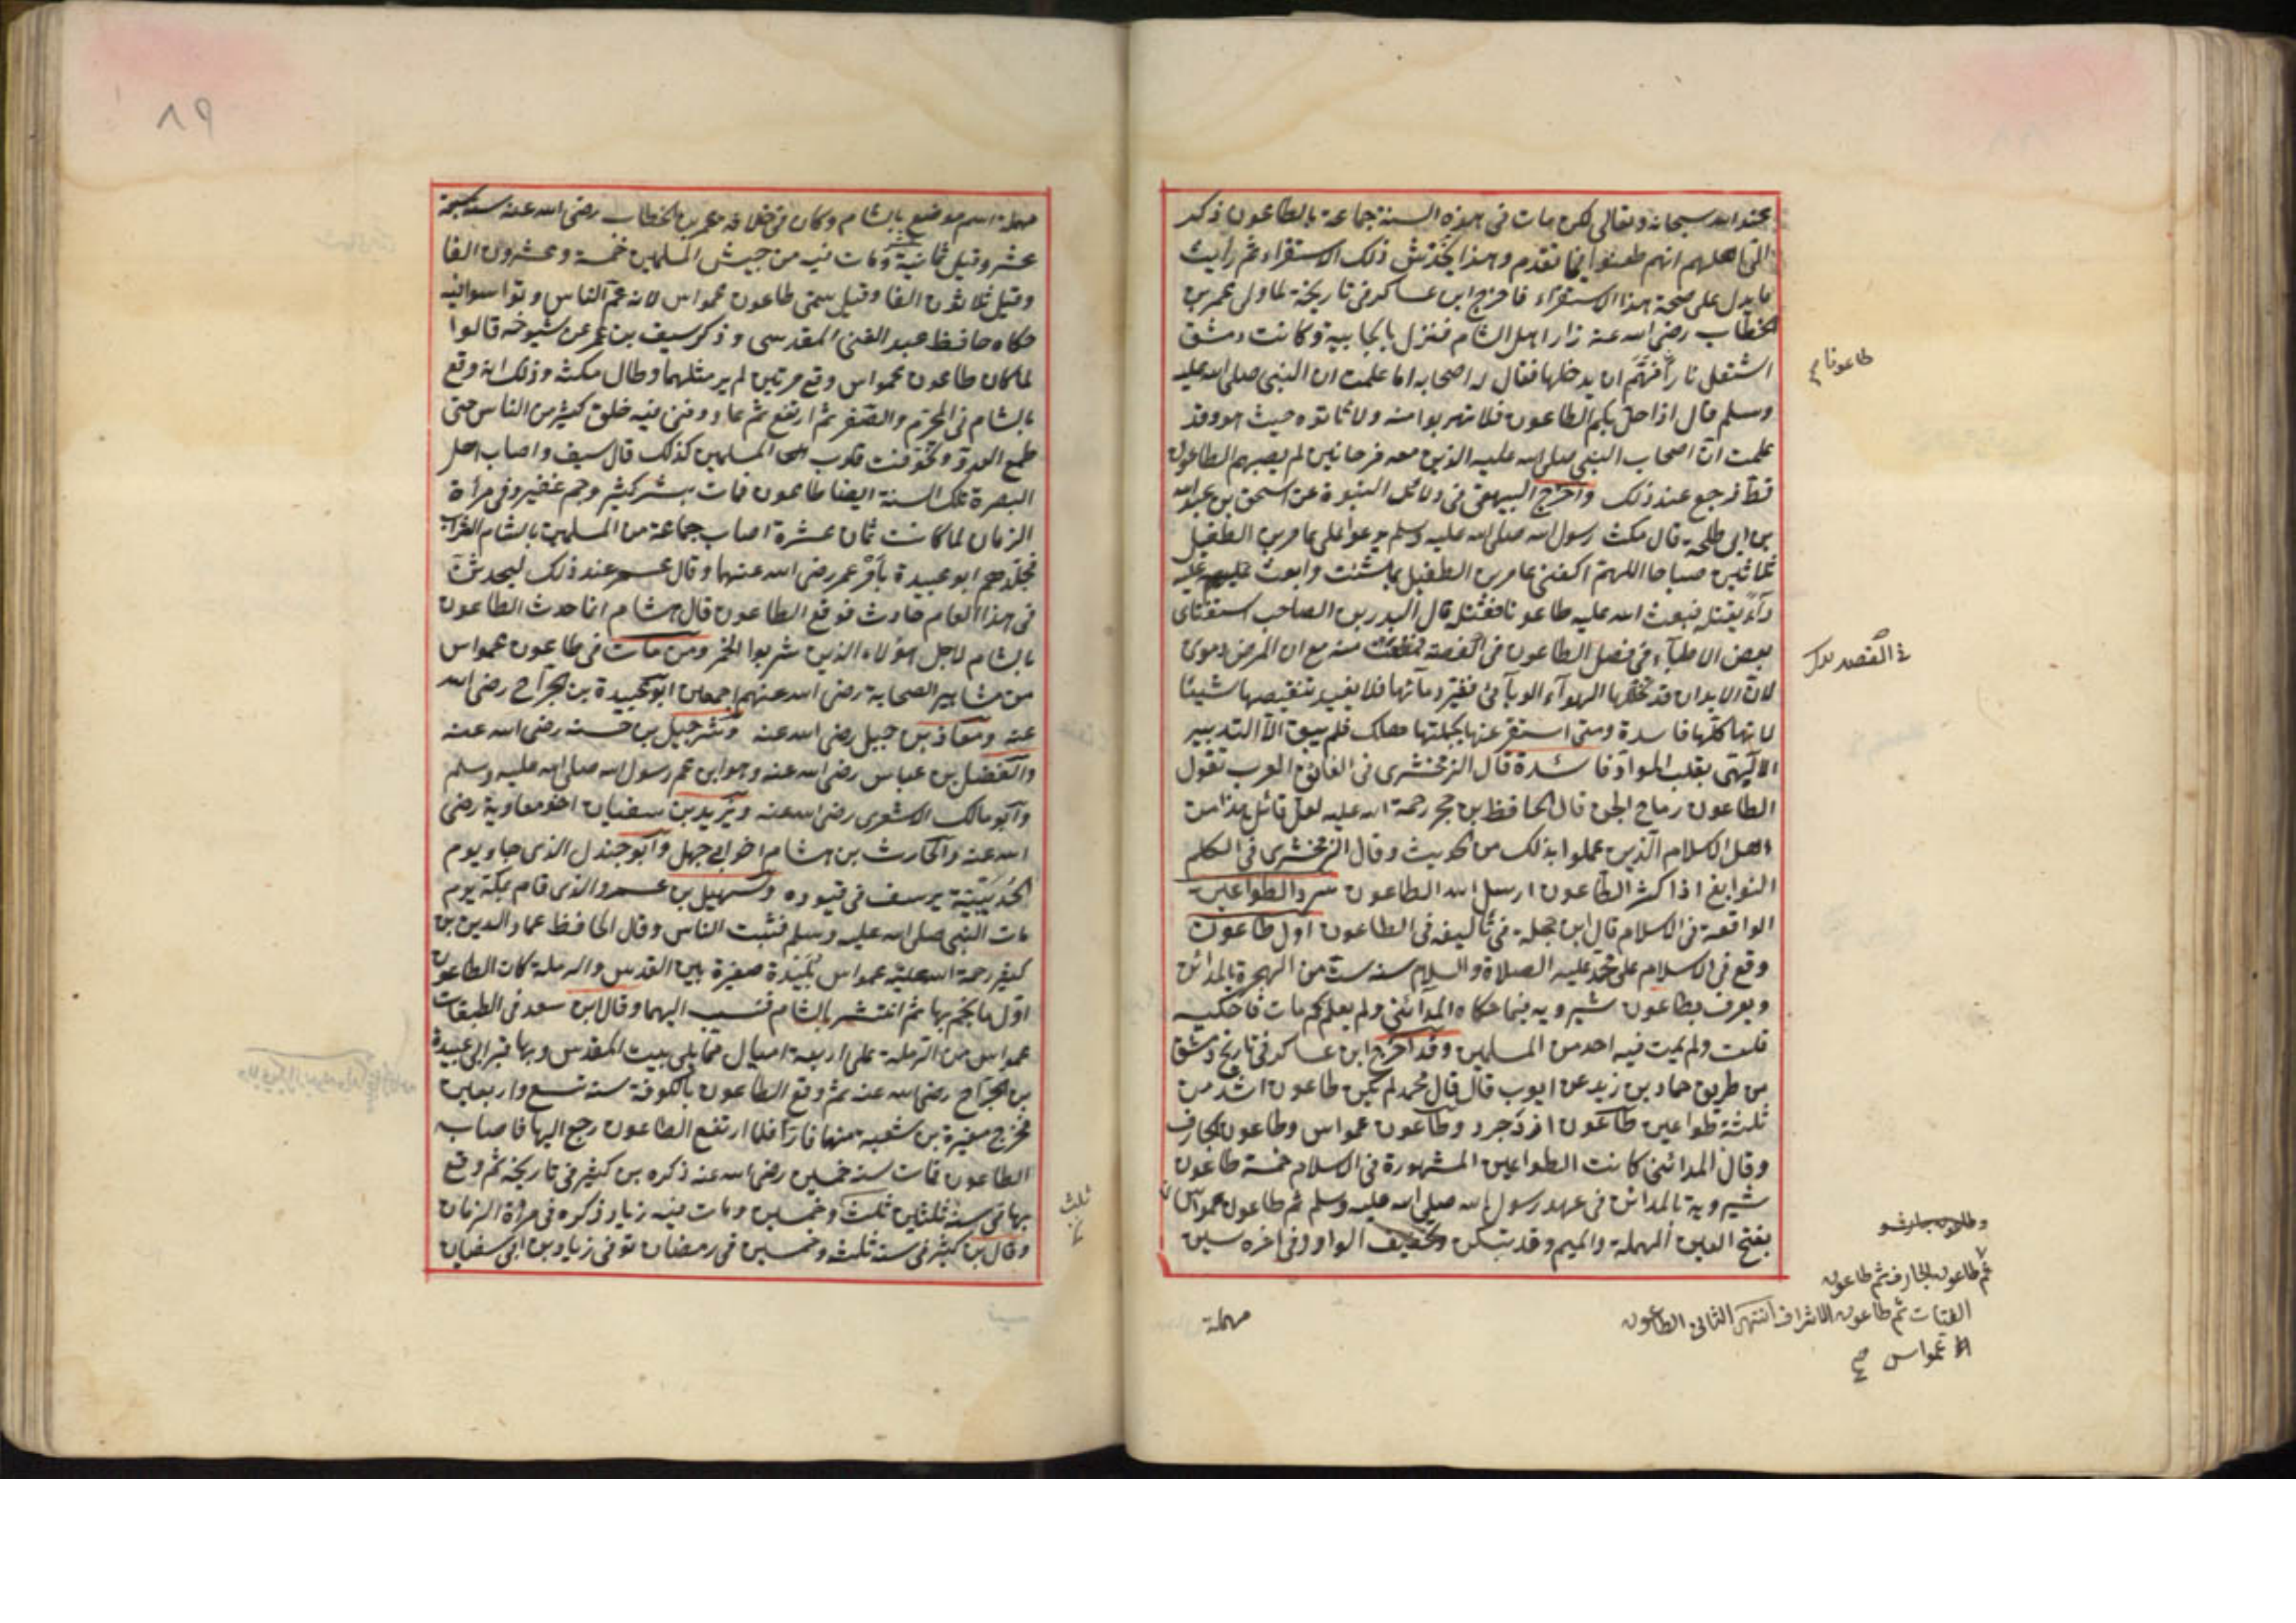 عند الله سبحانه وتعالى لكن مات فى هذه السنة جماعة بالطاعون ذكر
انهم طعنوا فيما تقدم وهذا يخدش ذلك الاستقراء ثم رأيت
ما يدل على صحة هذا الاستقراء فاخرج ابن عساكر فى تاريخه لما ولى عمر بن
الخطاب رضى الله عنه زار اهل الشام فنزل بالجابية وكانت دمشق
اشتعل نارا فهم ان يدخلها فقال له اصحابه اما علمت ان النبى صلى الله عليه
وسلم قال اذا حل بكم الطاعون فلا تهربوا منه ولا تأتوه حيث هو وقد
علمت ان اصحاب النبى صلى الله عليه الذين معه قرحانين لم يصبهم الطاعون
قط فرجع عند ذلك واخرج البيهقى فى دلائل النبوة عن اسحق بن عبد الله
بن ابى طلحة قال مكث رسول الله صلى الله عليه وسلم يدعو على عامر بن الطفيل
ثلاثين صباحا اللهم اكفنى عامر بن الطفيل بما شئت وابعث عليه
داء يقتله فبعث الله عليه طاعونا فقتله قال البدر بن الصاحب استفتاى
بعض الاطباء فى فصل الطاعون فى الفصد منه مع ان المرض دموى
لان الابدان قد تخللها الهواء الوبائى فغير دمائها فلا يفيد تنقيصها شيئا
لانها كلها فاسدة ومتى استفرغنها بجملتها هلك فلم يبق الا التدبير
الالهى بقلب المواد فائدة قال الزمخشرى فى الفائق العرب تقول
الطاعون رماح الجن قال الحافظ بن حجر رحمة الله عليه لعل قائل هذا من
اهل الكلام الذين عملوا بذلك من الحديث وقال الزمخشرى فى الكلم
النوابغ اذا كثر الطاعون ارسل الله الطاعون سرد الطواعين
الواقعة فى الاسلام قال ابن حجلة فى تأليفه فى الطاعون اول طاعون
وقع فى الاسلام على محمد عليه الصلاة والسلام سنة ست من الهجرة بالمدائن
ويعرف بطاعون شيرويه فيما حكاه المدائنى ولم يعلم كم مات فاحكيه
قلت ولم يمت فيه احد من المسلمين وقد اخرج ابن عساكر فى تاريخ دمشق
من طريق حماد بن زيد عن ايوب قال قال محمد لم يكن طاعون اشد من
ثلثة طواعين طاعون ازدجرد وطاعون عمواس وطاعون الجارف
وقال المدائنى كانت الطواعين المشهورة فى الاسلام خمسة طاعون
شيروية بالمدائن فى عهد رسول الله صلى الله عليه وسلم ثم طاعون عمواس
بفتح العين المهملة والميم وقد تسكن وتخفيف الواو وفى اخره سين
مهملة
طاعونا صح
فى الفصد بدل
ثم طاعون الجارف ثم طاعون
الفتيات ثم طاعون الاشراف انتهى الثانى الطاعون
عمواس صح
٨٩
مهملة اسم موضع بالشام وكان فى خلافة عمر بن الخطاب رضى الله عنه سنة سبعة
عشر وقيل ثمانية عشر ومات فيه من جيش المسلمين خمسة وعشرون الفا
وقيل ثلاثون الفا وقيل سمى طاعون عمواس لانه عم الناس وتواسوا فيه
حكاه حافظ عبد الغنى المقدسى وذكر سيف بن عمر عن شيوخه قالوا
لما كان طاعون عمواس وقع مرتين لم ير مثلهما وطال مكثه وذلك انه وقع
بالشام فى المحرم والصفر ثم ارتفع ثم عاد وفنى فيه خلق كثير من الناس حتى
طمع العدو وتخوفت قلوب المسلمين كذلك قال سيف واصاب اهل
البصرة تلك السنة ايضا طاعون فمات بشر كثير وجم غفير وفى مرأة
الزمان لما كانت ثمان عشرة اصاب جماعة من المسلمين بالشام الشراب
فجلدهم ابو عبيدة بأمر عمر رضى الله عنهما وقال عمر عند ذلك ليحدثن
فى هذا العام حادث فوقع الطاعون قال هشام انما حدث الطاعون
بالشام لاجل هؤلاء الذين شربوا الخمر ومن مات فى طاعون عمواس
من مشاهير الصحابة رضى الله عنهم اجمعين ابو عبيدة بن الجراح رضى الله
عنه ومعاذ بن جبل رضى الله عنه وشرحبيل بن حسنه رضى الله عنه
والفضل بن عباس رضى الله عنه وهو ابن عم رسول الله صلى الله عليه وسلم
وابو مالك الاشعرى رضى الله عنه ويزيد بن سفيان اخو معاوية رضى
الله عنه والحارث بن هشام اخو ابى جهل وابو جندل الذى جاء يوم
الحديبية يرسف فى قيوده وسهيل بن عمرو الذى قام بمكة يوم
مات النبى صلى الله عليه وسلم فثبت الناس وقال الحافظ عماد الدين بن
كثير رحمة الله عليه عمواس بليدة صغيرة بين القدس والرملة كان الطاعون
اول ما نجم بها ثم انتشر بالشام فنسب اليهما وقال ابن سعد فى الطبقات
عمواس من الرملة على اربعة اميال مما يلى بيت المقدس وبها قبر ابى عبيدة
بن الجراح رضى الله عنه ثم وقع الطاعون بالكوفة سنة تسع واربعين
فخرج مغيرة بن شعبة منها فارا فلما ارتفع الطاعون رجع اليها فاصابه
الطاعون فمات سنة خمسين رضى الله عنه ذكره بن كثير فى تاريخه ثم وقع
بها فى سنة ثلثين ثلث وخمسين ومات فيه زياد ذكره فى مرأة الزمان
وقال بن كثير فى سنة ثلث وخمسين فى رمضان توفى زياد بن ابى سفيان
ثلث